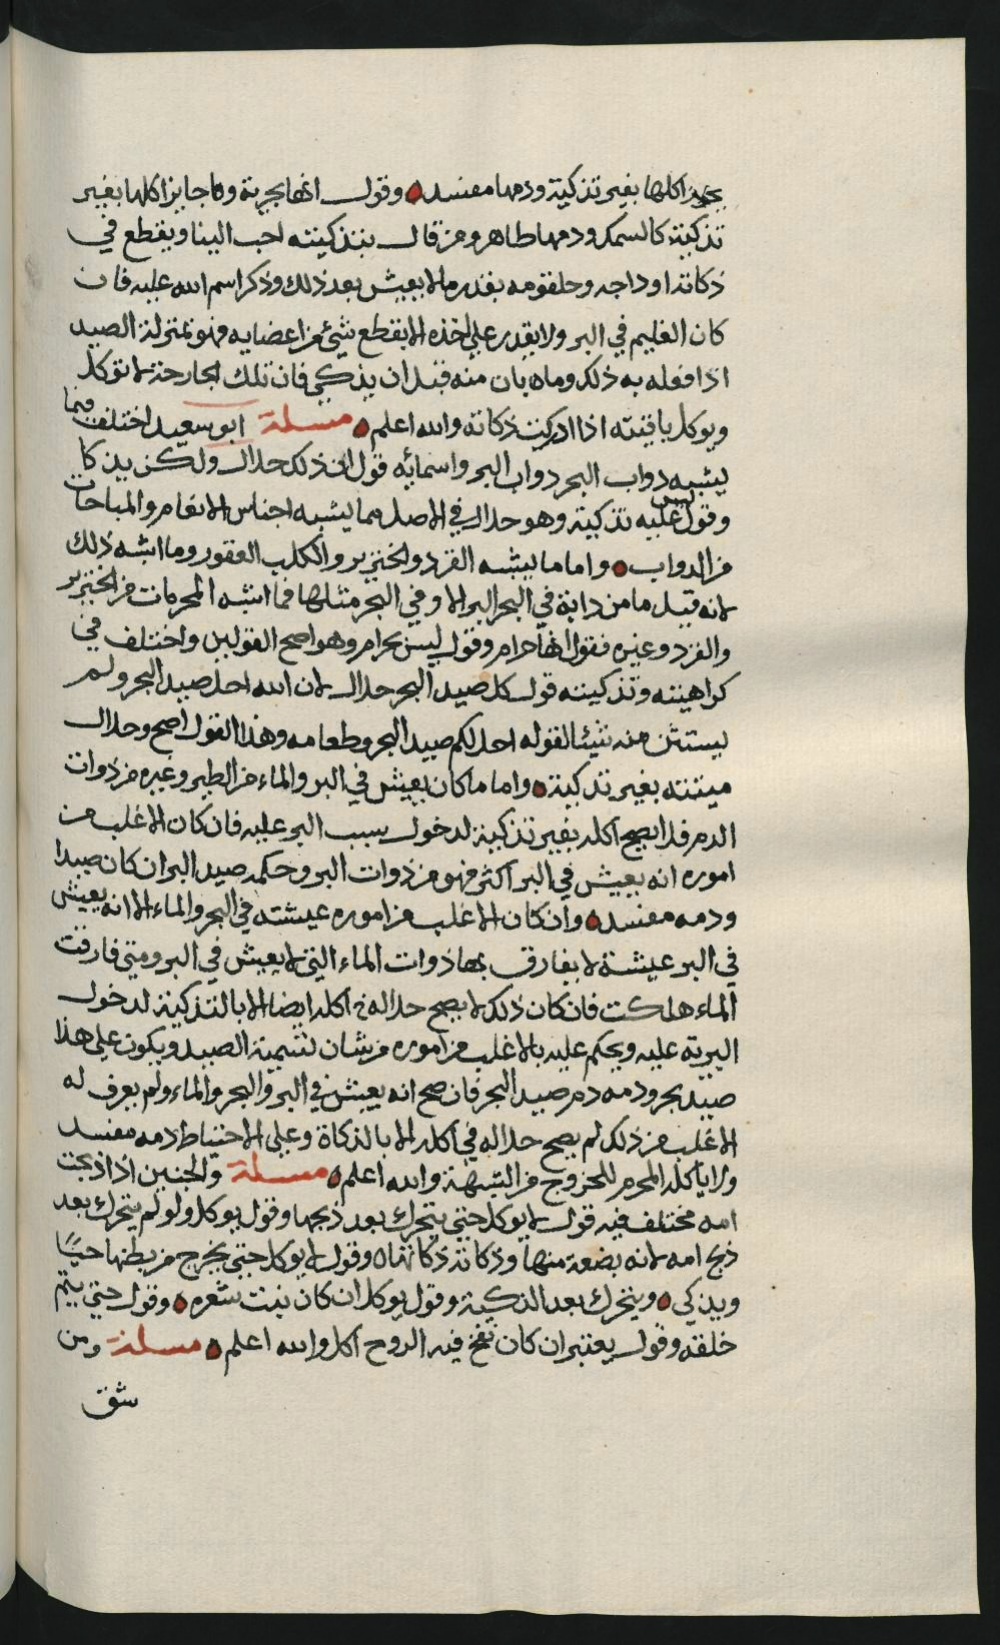 يجوز اكلها بغير تذكية ودمها مفسد ه وقول انها بحرية وانما جايز اكلها بغير
تذكية كالسمك ودمها طاهر ومن قال بتذكيته احب الينا ويقطع في
ذكاته اوداجه وحلقومه بقدر ما لا يعيش بعد ذلك وذكر اسم الله عليه فان
كان الغليم في البر ولا يقدر على اخذه الا بقطع شيء من اعضايه فهو بمنزلة الصيد
اذا فعل به ذلك وما بان منه قبل ان يذكى فان تلك الجارحة لا توكل
ويوكل باقيته اذا ادركت ذكاته والله اعلم ه مسلة ابو سعيد اختلف فيما
يشبه دواب البحر دواب البر واسمائه قول ان ذلك حلال ولكن يذكا
وقول ليس عليه تذكية وهو حلال في الاصل مما يشبه اجناس الانعام والمباحات
من الدواب ه واما ما يشبه القرد والخنزير والكلب العقور وما اشبه ذلك
لانه قيل ما من دابة في البر الا وفي البحر مثلها فما اشبه المحرمات من الخنزير
والقرد وغيره فقول انها حرام وقول ليس بحرام وهو اصح القولين واختلف في
كراهيته وتذكيته قول كل صيد البحر حلال لان الله احل صيد البحر ولم
يستثن منه شيئا لقوله احل لكم صيد البحر وطعامه وهذا القول اصح وحلال
ميتته بغير تذكية ه واما ما كان يعيش في البر والماء من الطير وغيره من ذوات
الدم فلا يصح اكله بغير تذكية لدخول سبب البر عليه فان كان الاغلب من
اموره انه يعيش في البر اكثر فهو من ذوات البر وحكمه صيد البر ان كان صيدا
ودمه مفسد ه وان كان الاغلب من اموره عيشته في البحر والماء الا انه يعيش
في البر عيشة لا يفارق بها ذوات الماء التي لا يعيش في البر ومتى فارقت
الماء هلكت فان كان ذلك لا يصح حلاله في اكله ايضا الا بالتذكية لدخول
البرية عليه ويحكم عليه بالاغلب من اموره من شان تسمية الصيد ويكون على هذا
صيد بحر ودمه دم صيد البحر فان صح انه يعيش في البر والبحر والماء ولم يعرف له
الاغلب من ذلك لم يصح حلاله في اكله الا بالذكاة وعلى الاحتياط دمه مفسد
ولا ياكله المحرم للخروج من الشبهة والله اعلم ه مسلة والجنين اذا ذبحت
امه مختلف فيه قول لا يوكل حتى يتحرك بعد ذبحها وقول يوكل ولو لم يتحرك بعد
ذبح امه لانه بضعة منها وذكاته ذكاتها ه وقول لا يوكل حتى يخرج من بطنها حيًا
ويذكى ه ويتحرك بعد الذكية وقول يوكل ان كان نبت شعره ه وقول حتى يتم
خلقه وقول يعتبر ان كان نفخ فيه الروح اكل والله اعلم ه مسلة ومن
شق